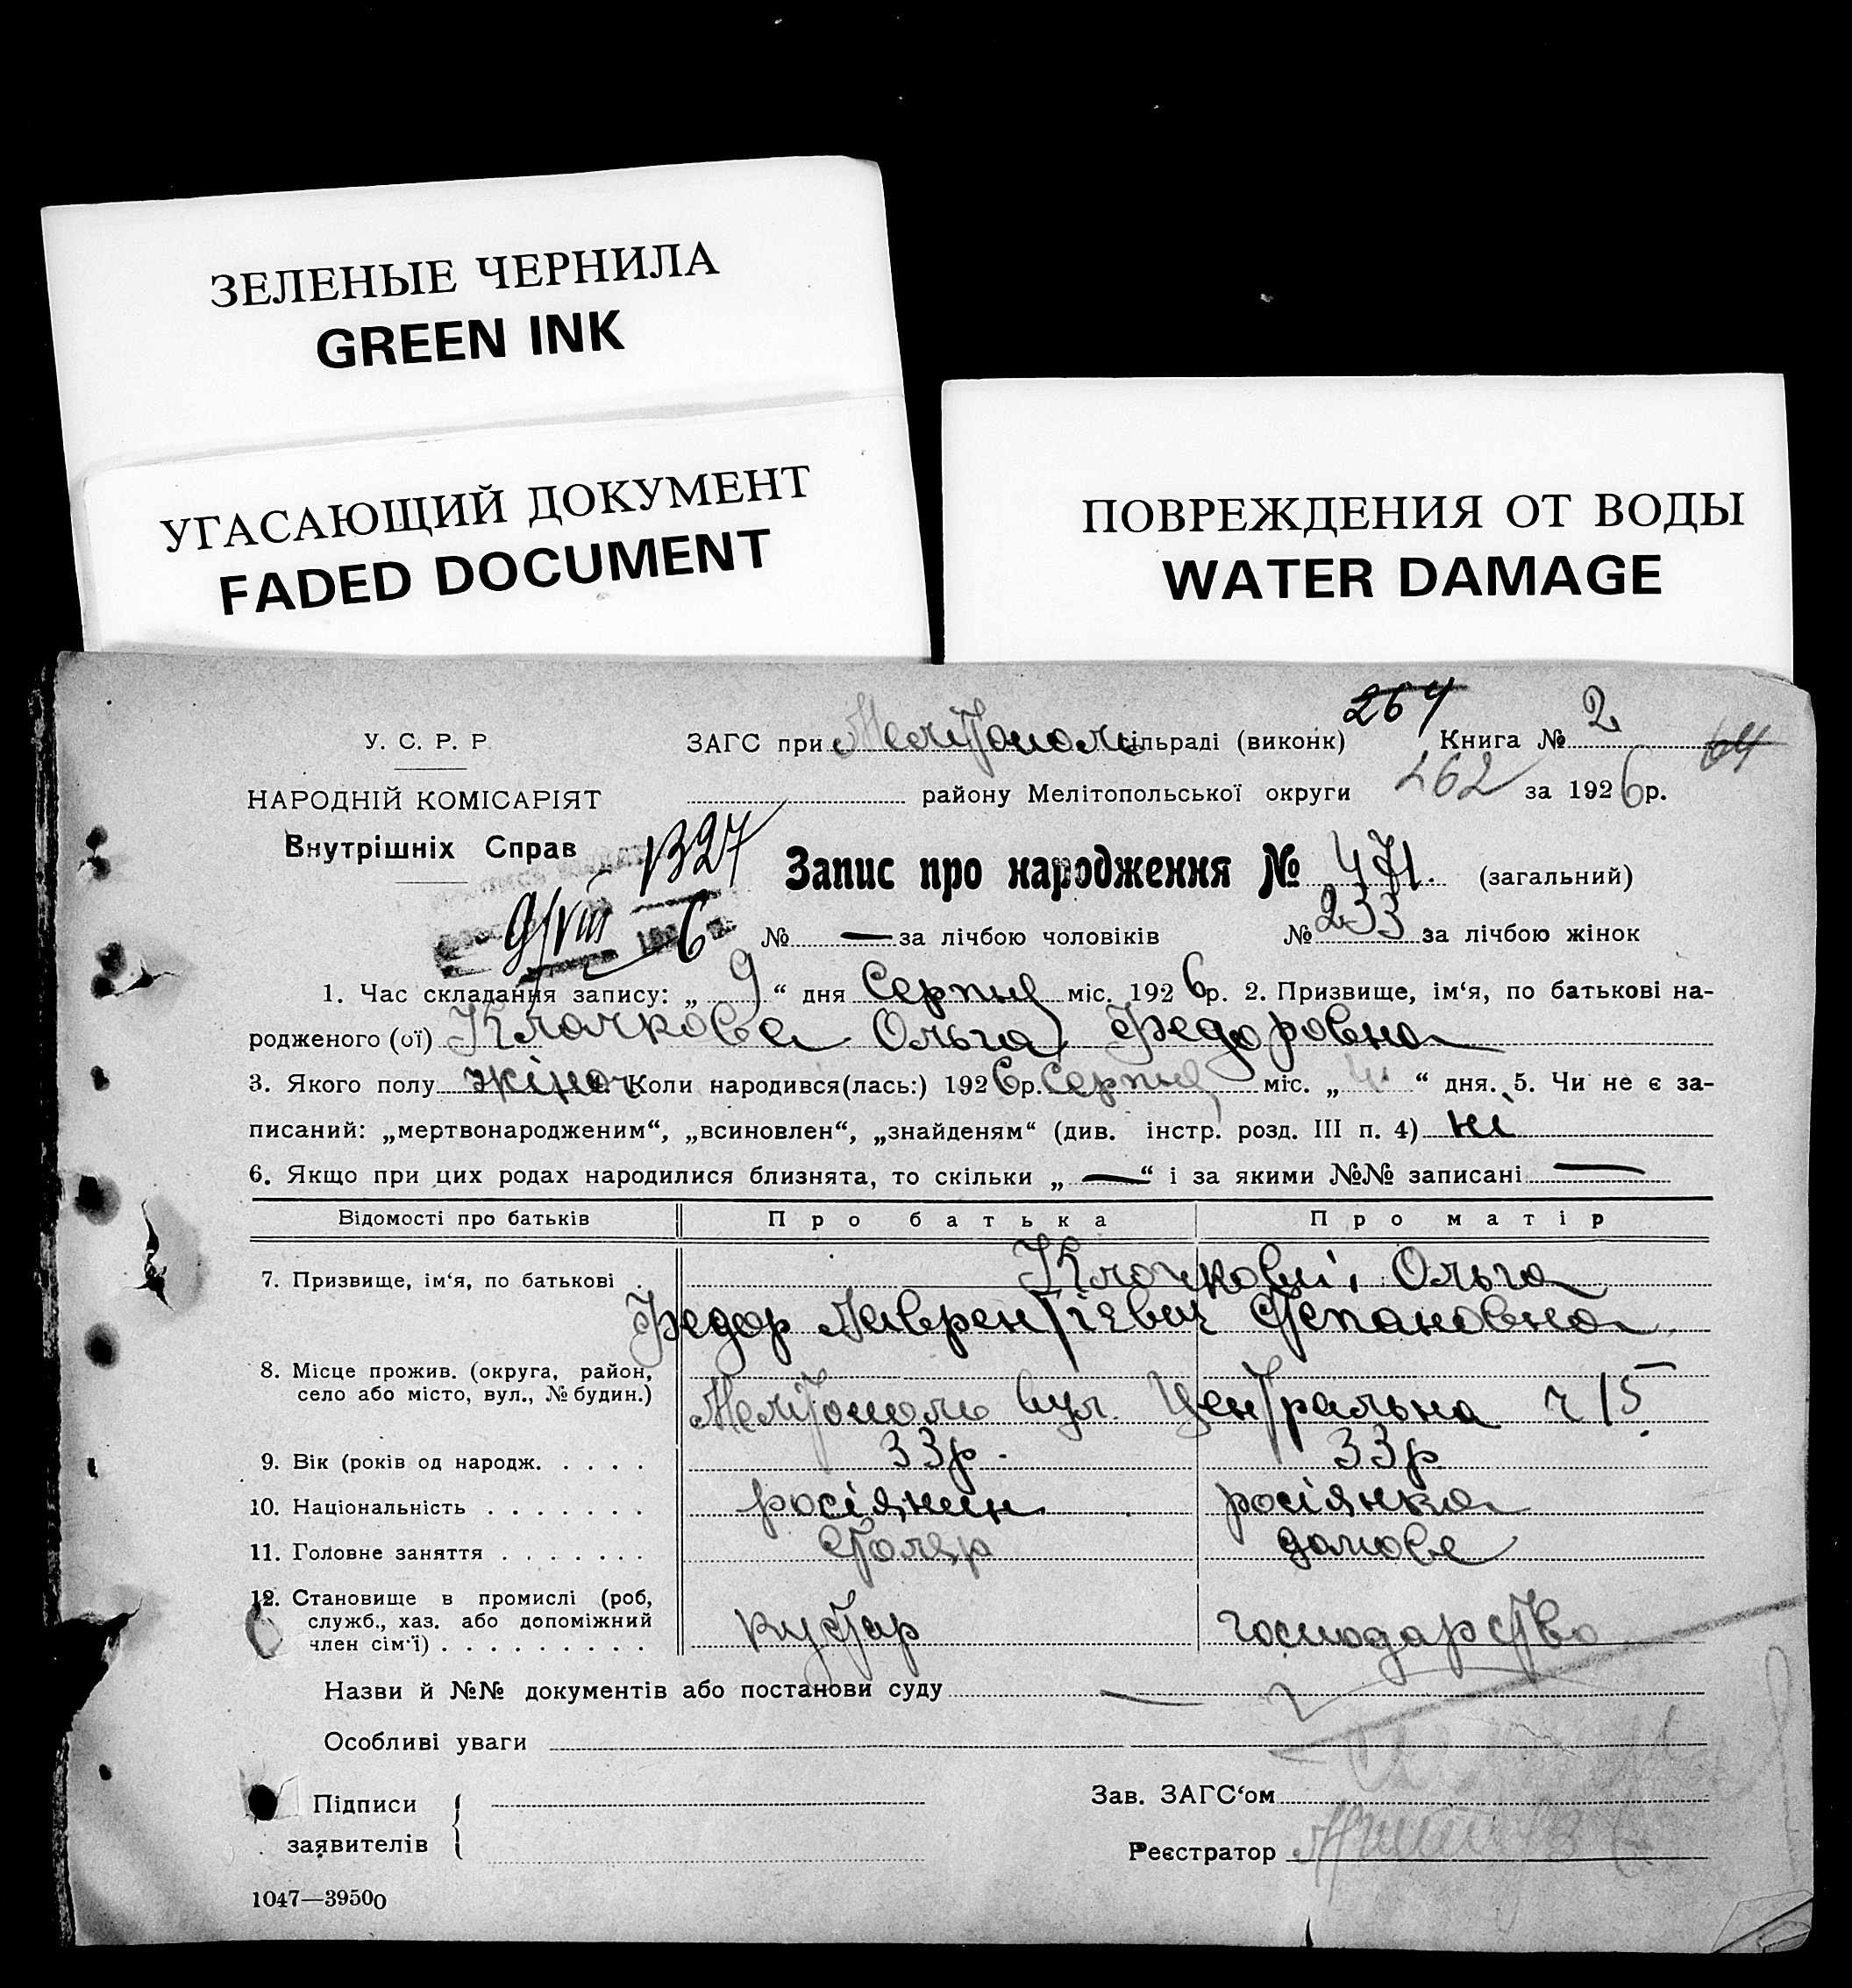 ЗЕЛЕНЫЕ ЧЕРНИЛА
GREEN INK
УГАСАЮЩИЙ ДОКУМЕНТ
FADED DOCUMENT
ПОВРЕЖДЕНИЯ ОТ ВОДЫ
WATER DAMAGE
264
У. С. Р. Р. ЗАГС при Мелітополь сільраді (виконк) Книга № 2 64
НАРОДНІЙ КОМІСАРІЯТ району Мелітопольської округи 262 за 1926 р.
Внутрішніх Справ
1327
Запис про народження № 471. (загальний)
9/VIII 6
№ — за лічбою чоловіків № 233 за лічбою жінок
1. Час складання запису: „ 9 “ дня Серпня міс. 1926 р. 2. Призвище, ім‘я, по батькові на-
родженого (ої) Клочкова Ольга Федоровна
3. Якого полу жіноч 4. Коли народився(лась:) 1926 р. Серпня міс. „ 4 “ дня. 5. Чи не є за-
писаний: „мертвонародженим“, „всиновлен“, „знайденям“ (див. інстр. розд. III п. 4) ні
6. Якщо при цих родах народилися близнята, то скільки „ — “ і за якими №№ записані —
Відомості про батьків Про батька Про матір
7. Призвище, ім‘я, по батькові . Клочкови, Ольга
Федор Лаврентієвич Степановна
8. Місце прожив. (округа, район,
село або місто, вул., № будин.) Мелітополь вул. Центральна ч 15
9. Вік (років од народж. . . . . 33р. 33р
10. Національність . . . . . . . росіянин росіянка
11. Головне заняття . . . . . . . Столяр домове
12. Становище в промислі (роб,
служб., хаз. або допоміжний
член сім‘ї) . . . . . . . . . кустар господарство
Назви й №№ документів або постанови суду —
Особливі уваги
Підписи
заявителів
Зав. ЗАГС‘ом
Реєстратор
1047—39500